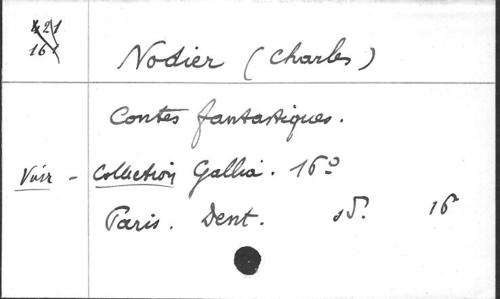 421
161
Nodier (Charles)
Contes fantastiques.
Voir - Collection Gallia. 16º
Paris. Dent. sd. 16º